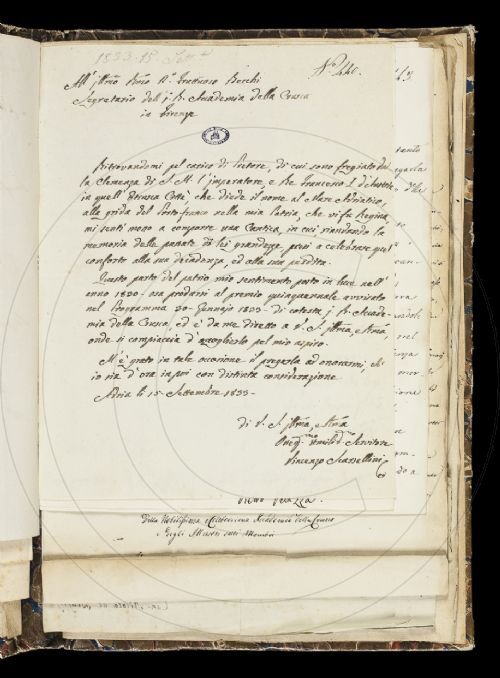 1833. 15. Sett.e
N.o 440.
All' Illmo Sigr
Segretario dell' I. R. Accademia della Crusca
in Firenze
Ritrovandomi pel carico di Pretore, di cui sono fregiato dal
la Clemenza di S. M. l'Imperatore, e Re Francesco I. d'Austria
in quell'Etrusca Città, che diede il nome al Mare Adriatico,
alla grida del Porto-franco nella mia Patria, che vi fu Regina,
mi sentj mosso a comporre una Cantica, in cui riandando la
memoria delle passate di lei grandezze, presi a celebrare quel
conforto alla sua decadenza, ed alla sua perdita.
Questo parto del patrio mio sentimento posto in luce nell'
anno 1830 - osa prodursi al premio quinquennale avvisato
nel Programma 30 - Gennajo 1833 - di cotesta I. R. Accade-
mia della Crusca, ed è da me diretto a V. S. Illma, e
onde si compiaccia d'accoglierlo pel mio aspiro.
M'è grato in tale occasione il pregarla ad onorarmi, ch'
io sia d'ora in poi con distinta considerazione
Adria li 15 - Settembre 1833 -
di V. S. Illma, e
Servitore
Vincenzo
Della Nobilissima Accademia della Crusca